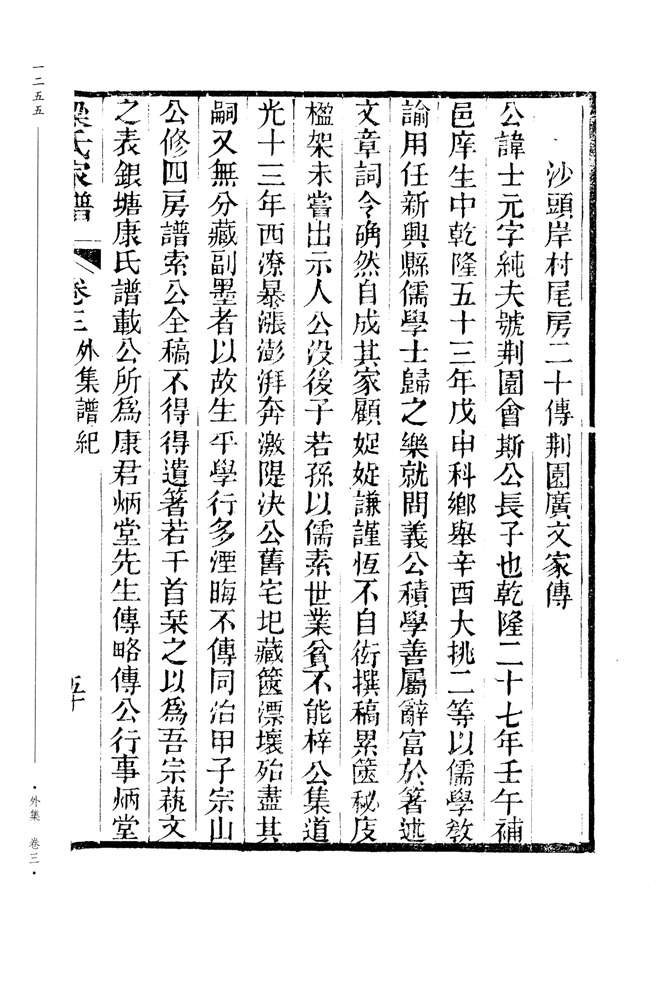 沙頭岸村尾房二十傳荆園廣文家傳
公諱士元字純夫號荆園會斯公長子也乾隆二十七年壬午補
邑庠生中乾隆五十三年戊申科鄉舉辛酉大挑二等以儒學教
諭用任新興縣儒學士歸之樂就問義公積學善屬辭富於箸述
文章詞令确然自成其家顧娖娖謙謹恆不自衒撰稿累篋秘庋
楹架未嘗出示人公沒後子若孫以儒素世業貧不能梓公集道
光十三年西潦暴漲澎湃奔激隄決公舊宅圮藏篋漂壞殆盡其
嗣又無分藏副墨者以故生平學行多湮晦不傳同治甲子宗山
公修四房譜索公全稿不得得遺箸若干首栞之以爲吾宗蓺文
之表銀塘康氏譜載公所爲康君炳堂先生傳略傳公行事炳堂
梁氏家譜 卷三 外集譜紀 五十
一二五五
·外集 卷三·